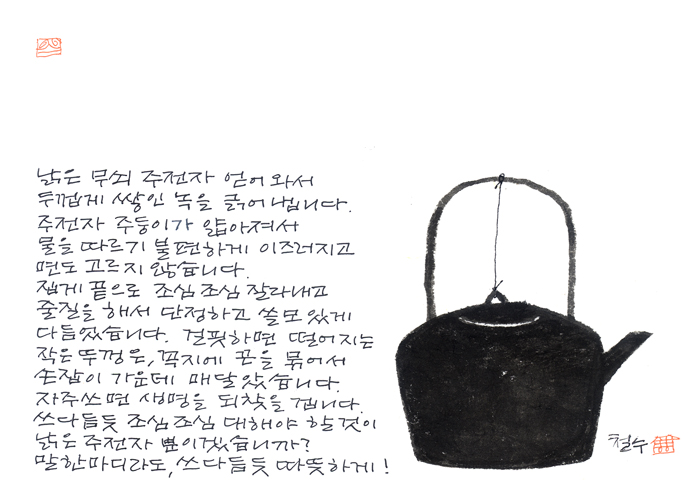 낡은 무쇠 주전자 얻어 와서
두껍게 쌓인 녹을 긁어 냅니다.
주전자 주둥이가 얇아져서
물을 따르기 불편하게 이즈러지고
면도 고르지 않습니다.
집게 끝으로 조심조심 잘라내고
줄질을 해서 단정하고 쓸모있게
다듬었습니다. 걸핏하면 떨어지는
작은 뚜껑은, 꼭지에 끈을 묶어서
손잡이 가운데 매달았습니다.
자주쓰면 생명을 되찾을 겁니다.
쓰다듬듯 조심조심 대해야 할것이
낡은 주전자 뿐이겠습니까?
말한마디라도, 쓰다듬듯 따뜻하게!
철수